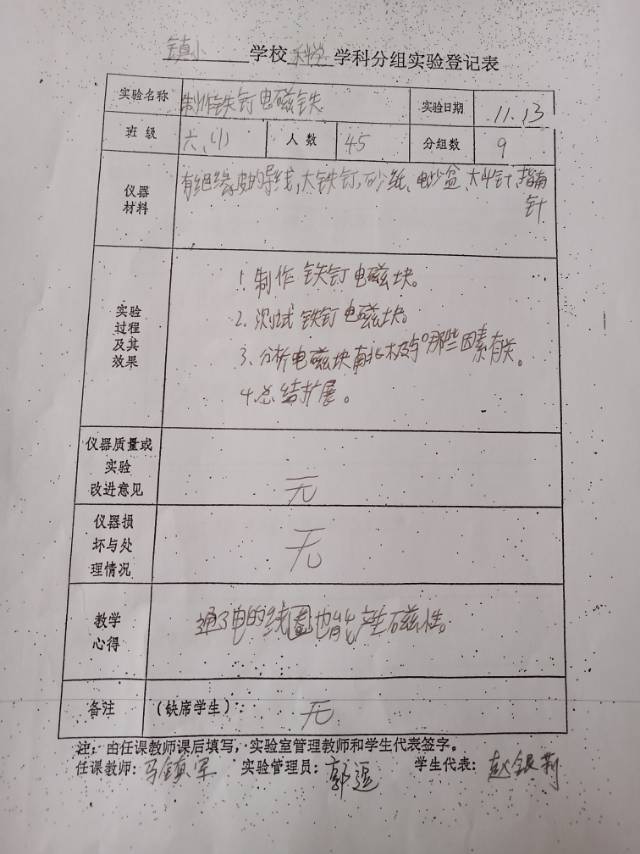 镇小学校科学学科分组实验登记表
实验名称 制作铁钉电磁铁 实验日期 11.13
班级 六(1) 人数 45 分组数 9
仪器材料 有绝缘皮的导线,大铁钉,砂纸、电池盒、大头针,指南
针
实验过程及其效果
1.制作铁钉电磁块。
2.测试铁钉电磁块。
3.分析电磁块南北极与哪些因素有关。
4.总结扩展。
仪器质量或实验改进意见 无
仪器损坏与处理情况 无
教学心得 通了电的线圈也能产生磁性。
备注 (缺席学生): 无
注:由任课教师课后填写,实验室管理教师和学生代表签字。
任课教师:马镇军 实验管理员:郭 学生代表:赵银